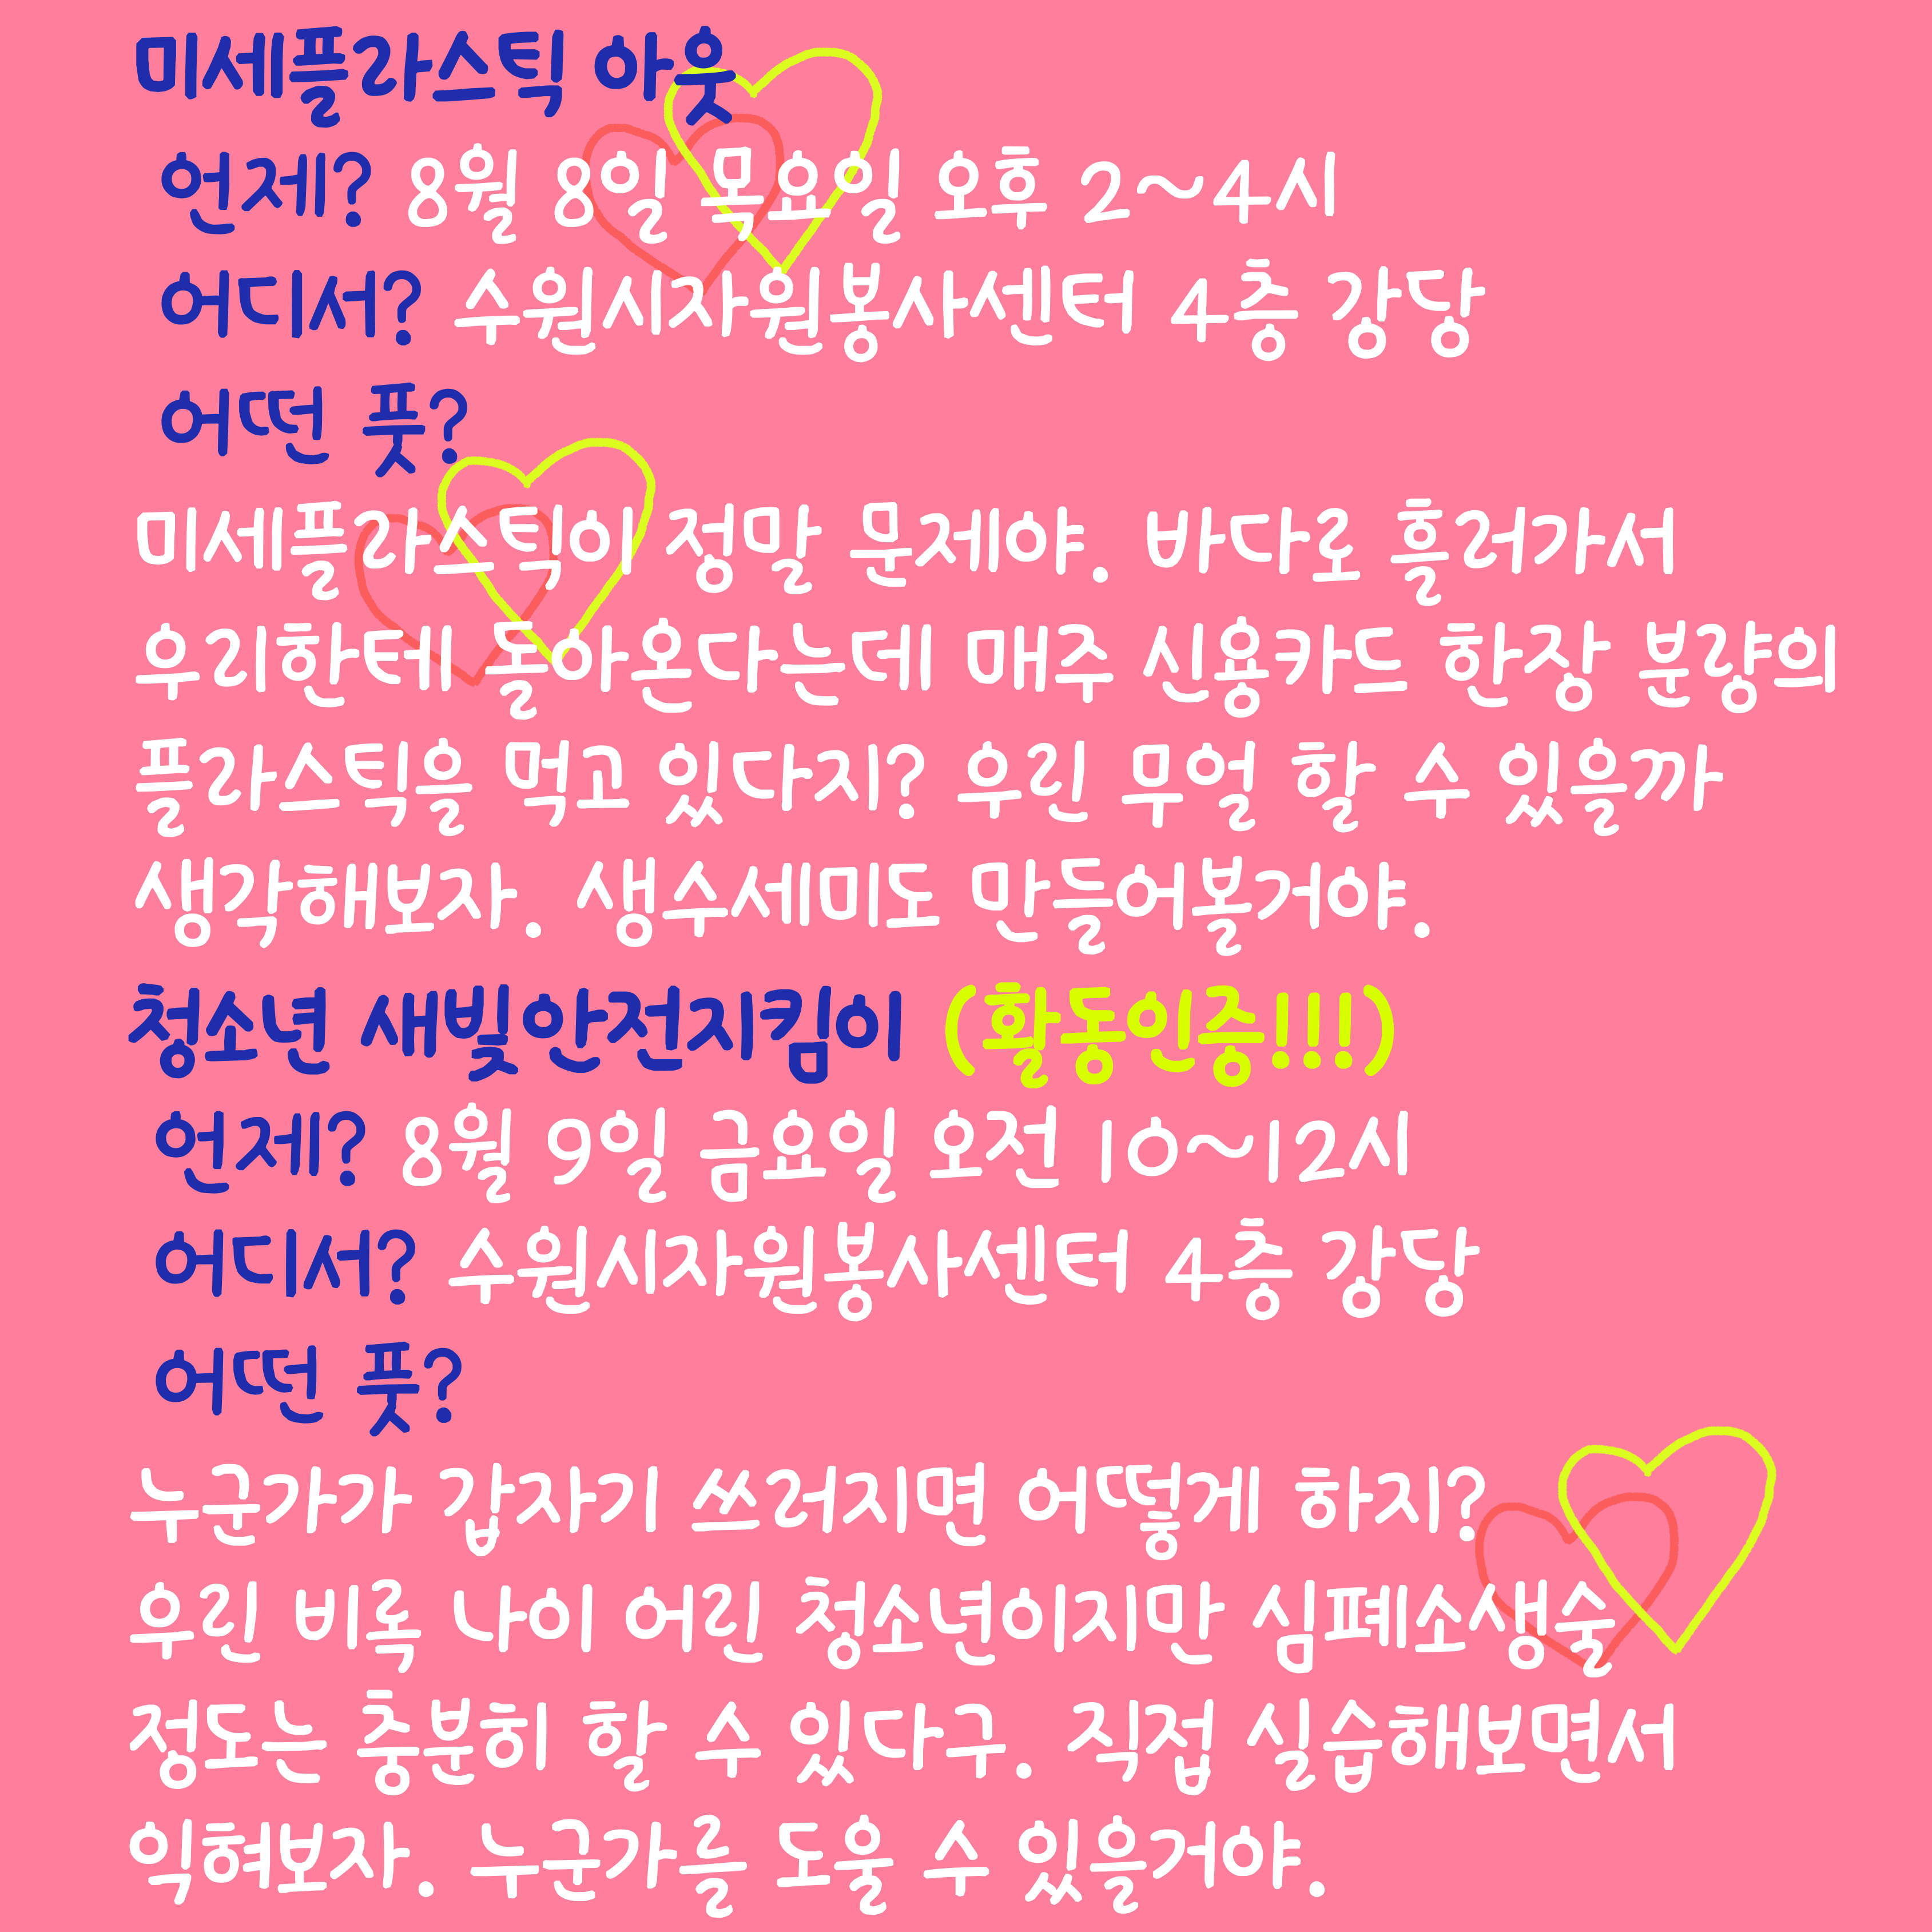 미세플라스틱 아웃
언제? 8월 8일 목요일 오후 2~4시
어디서? 수원시자원봉사센터 4층 강당
어떤 풋?
미세플라스틱이 정말 문제야. 바다로 흘러가서
우리한테 돌아온다는데 매주 신용카드 한장 분량의
플라스틱을 먹고 있다지? 우린 무얼 할 수 있을까
생각해보자. 생수세미도 만들어볼거야.
청소년 새빛안전지킴이 (활동인증!!!)
언제? 8월 9일 금요일 오전 10~12시
어디서? 수원시자원봉사센터 4층 강당
어떤 풋?
누군가가 갑자기 쓰러지면 어떻게 하지?
우린 비록 나이 어린 청소년이지만 심폐소생술
정도는 충분히 할 수 있다구. 직접 실습해보면서
익혀보자. 누군가를 도울 수 있을거야.